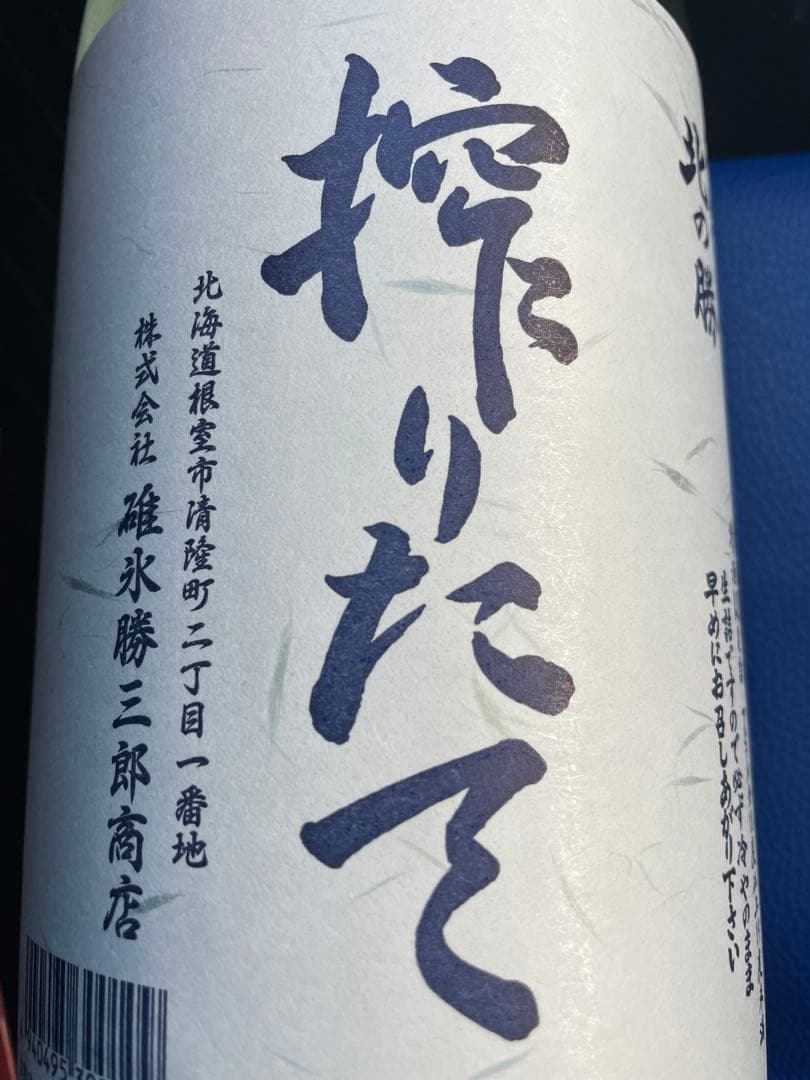 北の勝
生詰ですので必ず冷やのまま
早めにお召しあがり下さい
搾りたて
北海道根室市清隆町二丁目一番地
株式会社 碓氷勝三郎商店